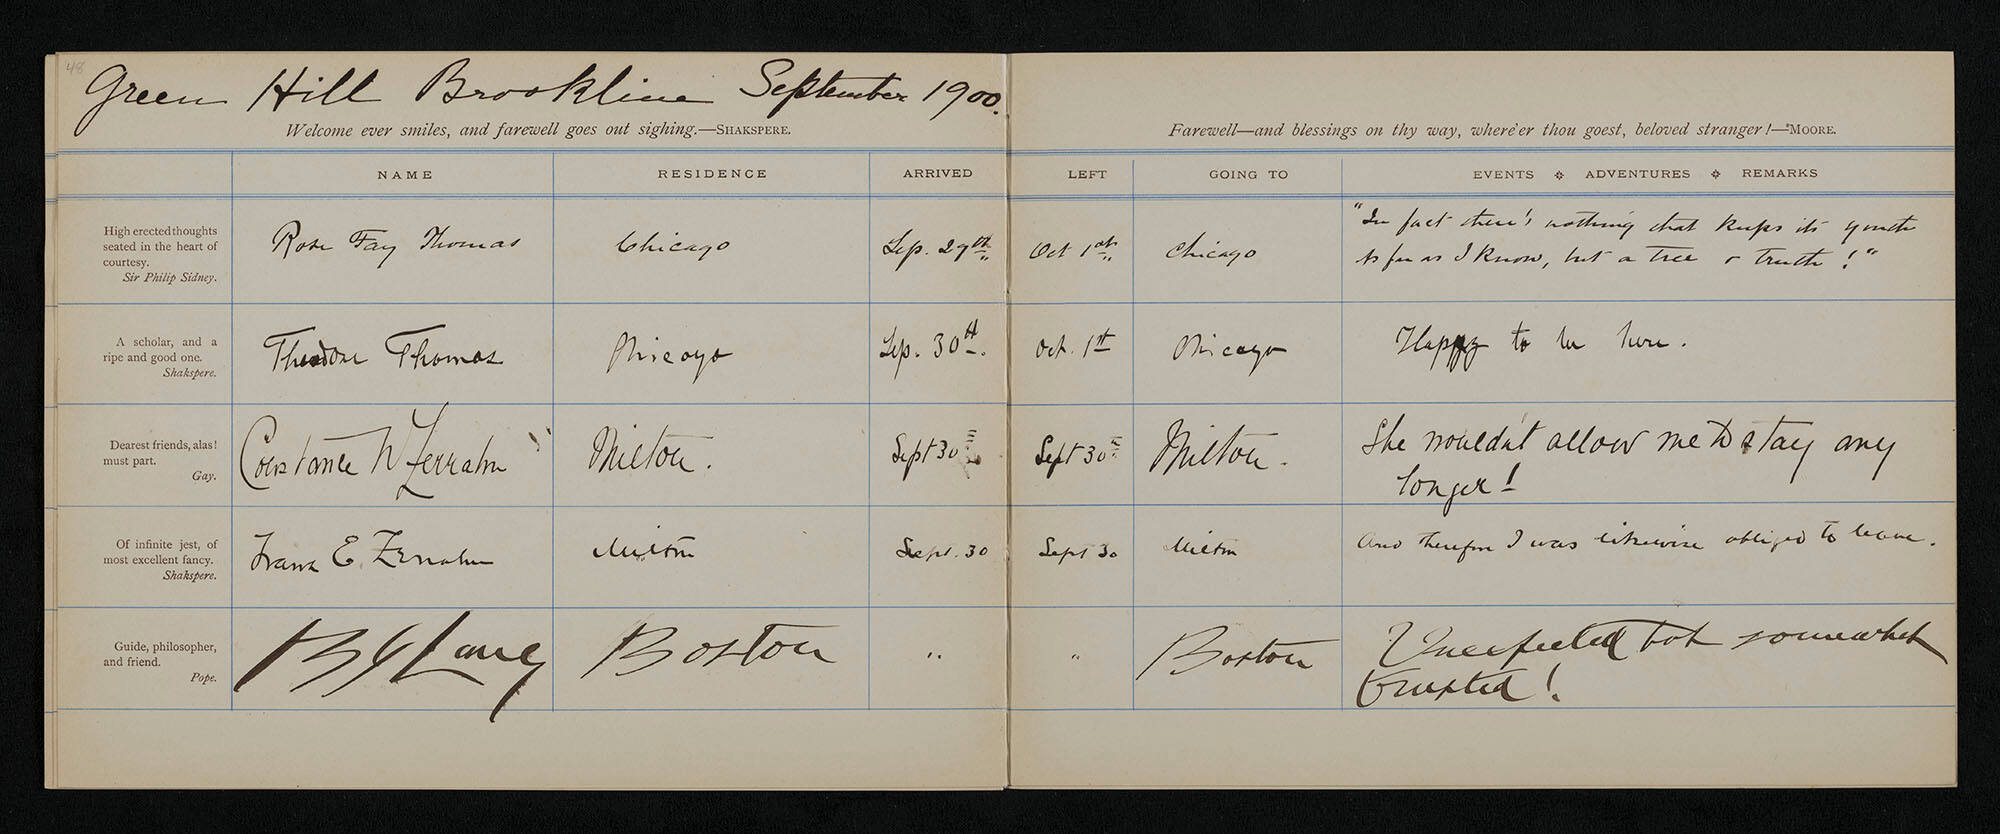 48
Green Hill Brookline September 1900.
Welcome ever smiles, and farewell goes out sighing.—SHAKSPERE.
Farewell—and blessings on thy way, where'er thou goest, beloved stranger!—MOORE.
NAME RESIDENCE ARRIVED LEFT GOING TO EVENTS ADVENTURES REMARKS
High erected thoughts
seated in the heart of
courtesy.
Sir Philip Sidney.
Rose Fay Thomas Chicago Sep. 29th Oct 1st Chicago
"In fact there's nothing that keeps its youth
As far as I know, but a tree & truth!"
A scholar, and a
ripe and good one.
Shakspere.
Theodore Thomas Chicago Sep. 30th. Oct. 1st Chicago Happy to be here.
Dearest friends, alas!
must part.
Gay.
Constance Milton. Sept 30 Sept 30 Milton.
She wouldn't allow me to stay any
longer!
Of infinite jest, of
most excellent fancy.
Shakspere.
E. Milton Sept. 30 Sept 30 Milton And therefore I was likewise obliged to leave.
Guide, philosopher,
and friend.
Pope.
B J Lang Boston " " Boston
Unexpected but somewhat
trusted!